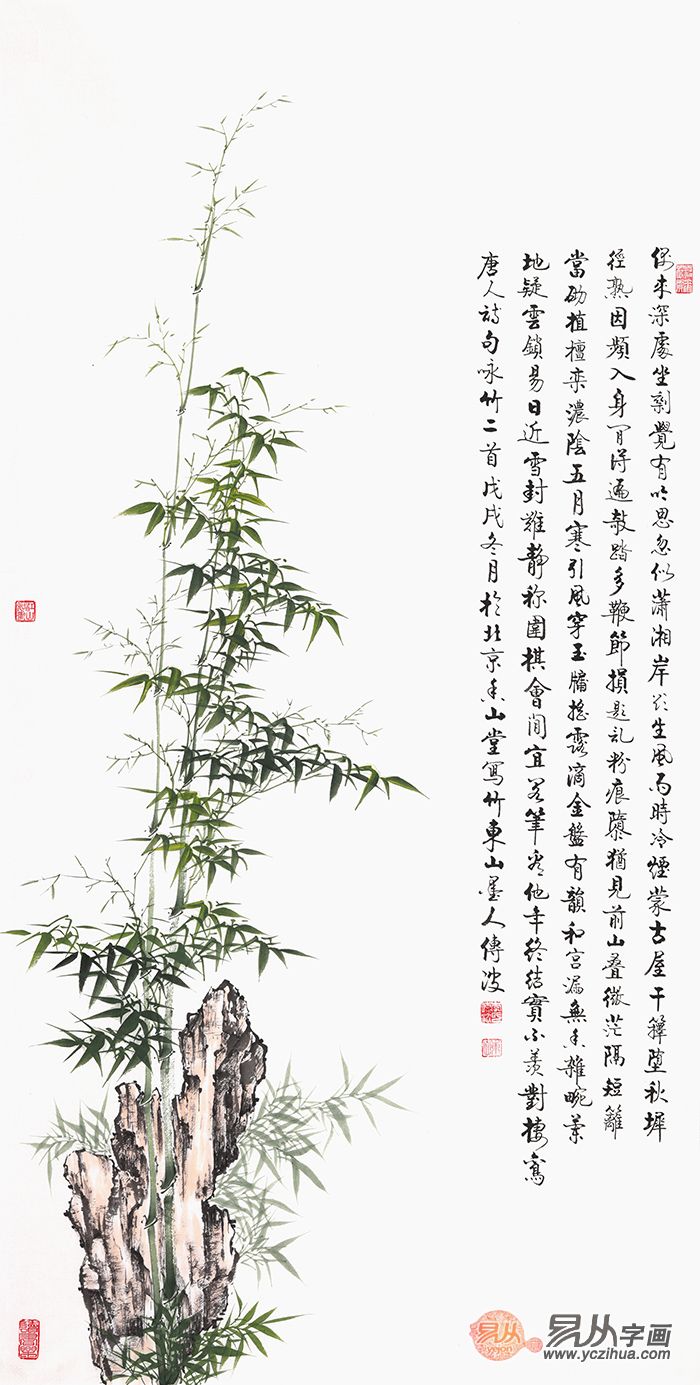 偶来深處坐剩覺有吟思忽似瀟湘岸欲生風雨時冷煙蒙古屋干籜墮秋墀
徑熟因頻入身閒得遍欹踏多鞭節損題亂粉痕隳猶見前山疊微茫隔短籬
當砌植檀欒濃陰五月寒引風穿玉牖搖露滴金盤有韻和宮漏無香雜畹蘭
地疑雲鎖易日近雪封難静称圍棋會閒宜閣筆看他年終結實不羡對棲鸞
唐人詩句咏竹二首戊戌冬月於北京香山堂寫竹東山墨人傅波
易从字画
www.yczihua.com